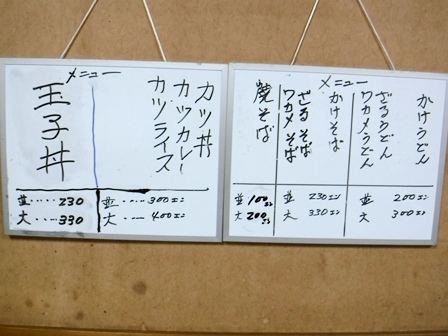 メニュー
カツ丼
カツカレー
カツライス
並‥‥300エン
大‥‥400エン
玉子丼
並‥‥230
大‥‥330
メニュー
かけうどん
並 200エン
大 300エン
ざるうどん
ワカメうどん
かけそば
ざるそば
ワカメそば
並 230エン
大 330エン
焼そば
並 100エン
大 200エン